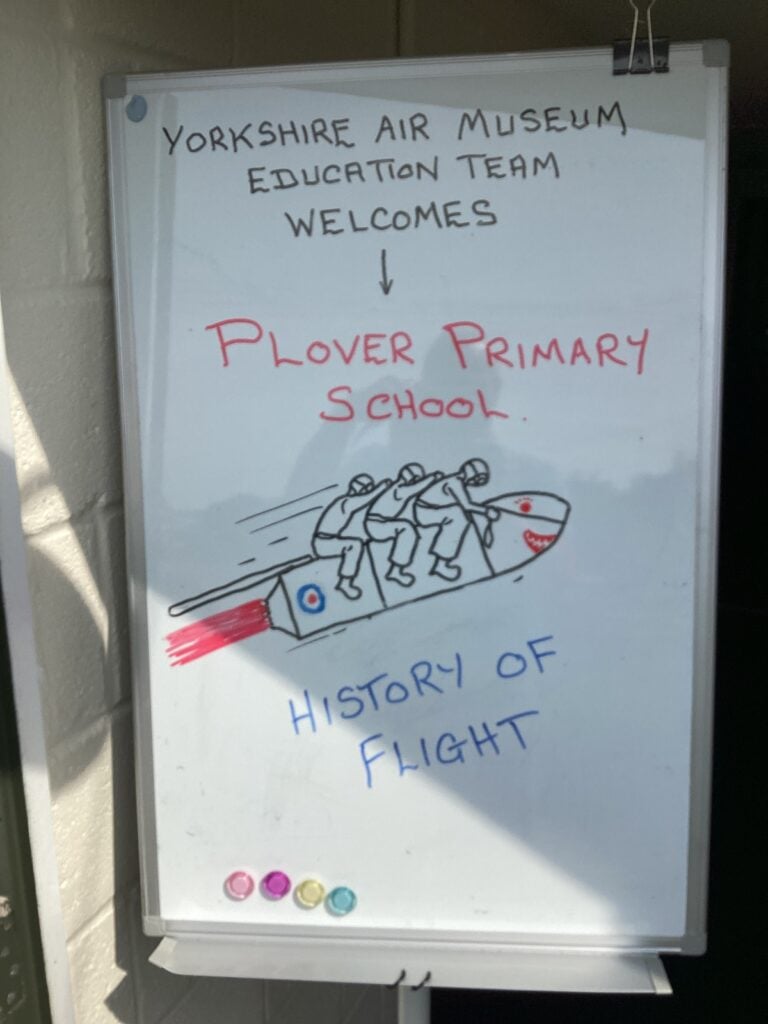 YORKSHIRE AIR MUSEUM
EDUCATION TEAM
WELCOMES
PLOVER PRIMARY
SCHOOL.
HISTORY OF
FLIGHT